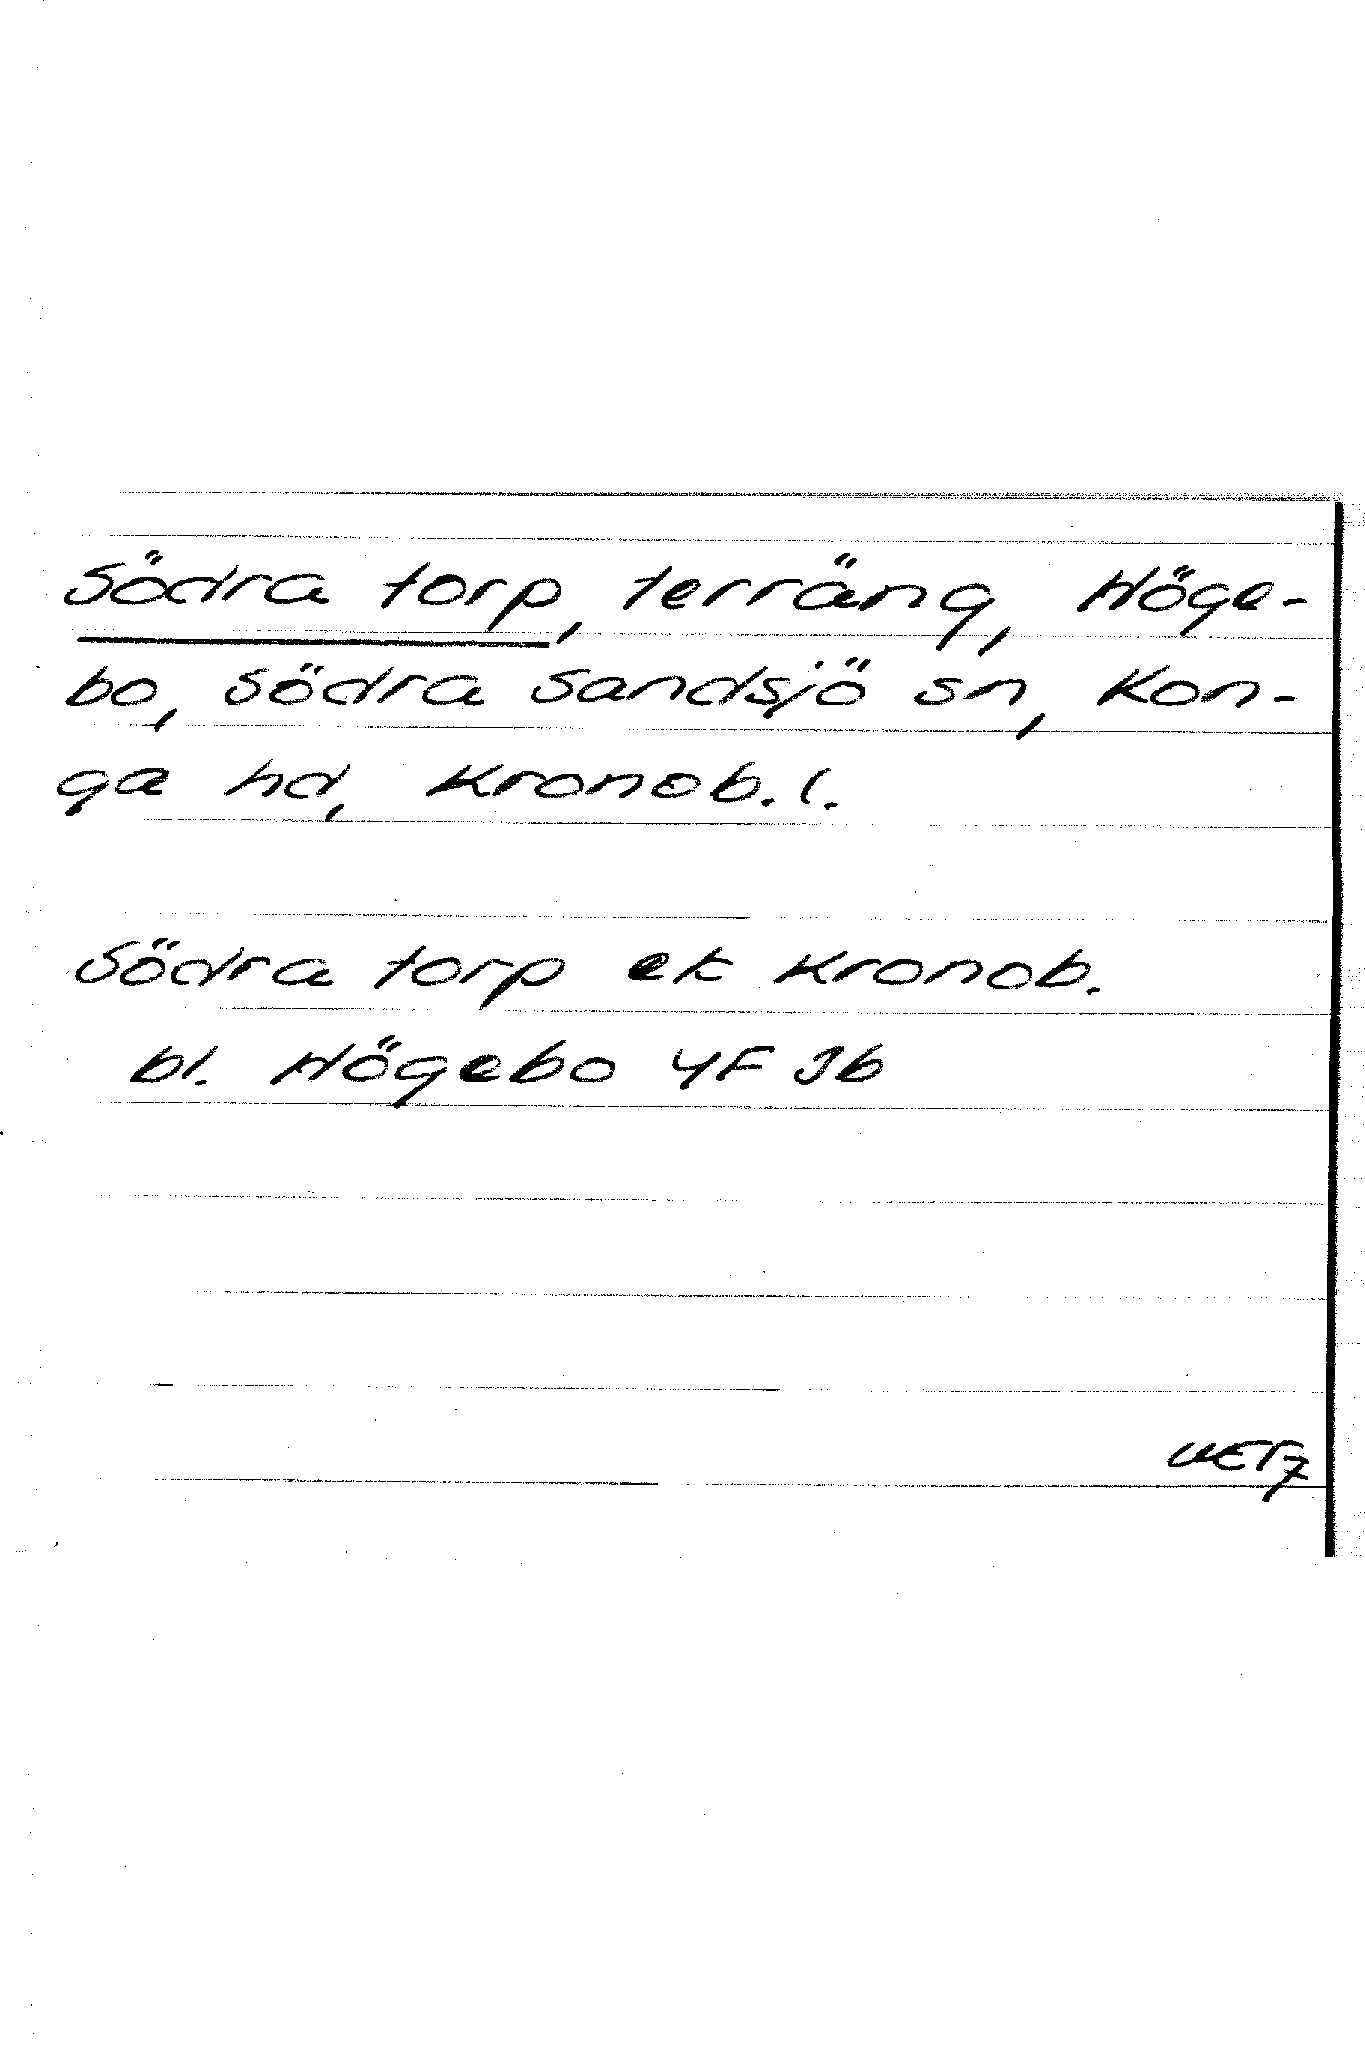 Södra torp, terräng, Höge-
bo, Södra Sandsjö sn, Kon-
ga hd, Kronob. l.
Södra torp ek Kronob.
bl. Högebo 4F 9b